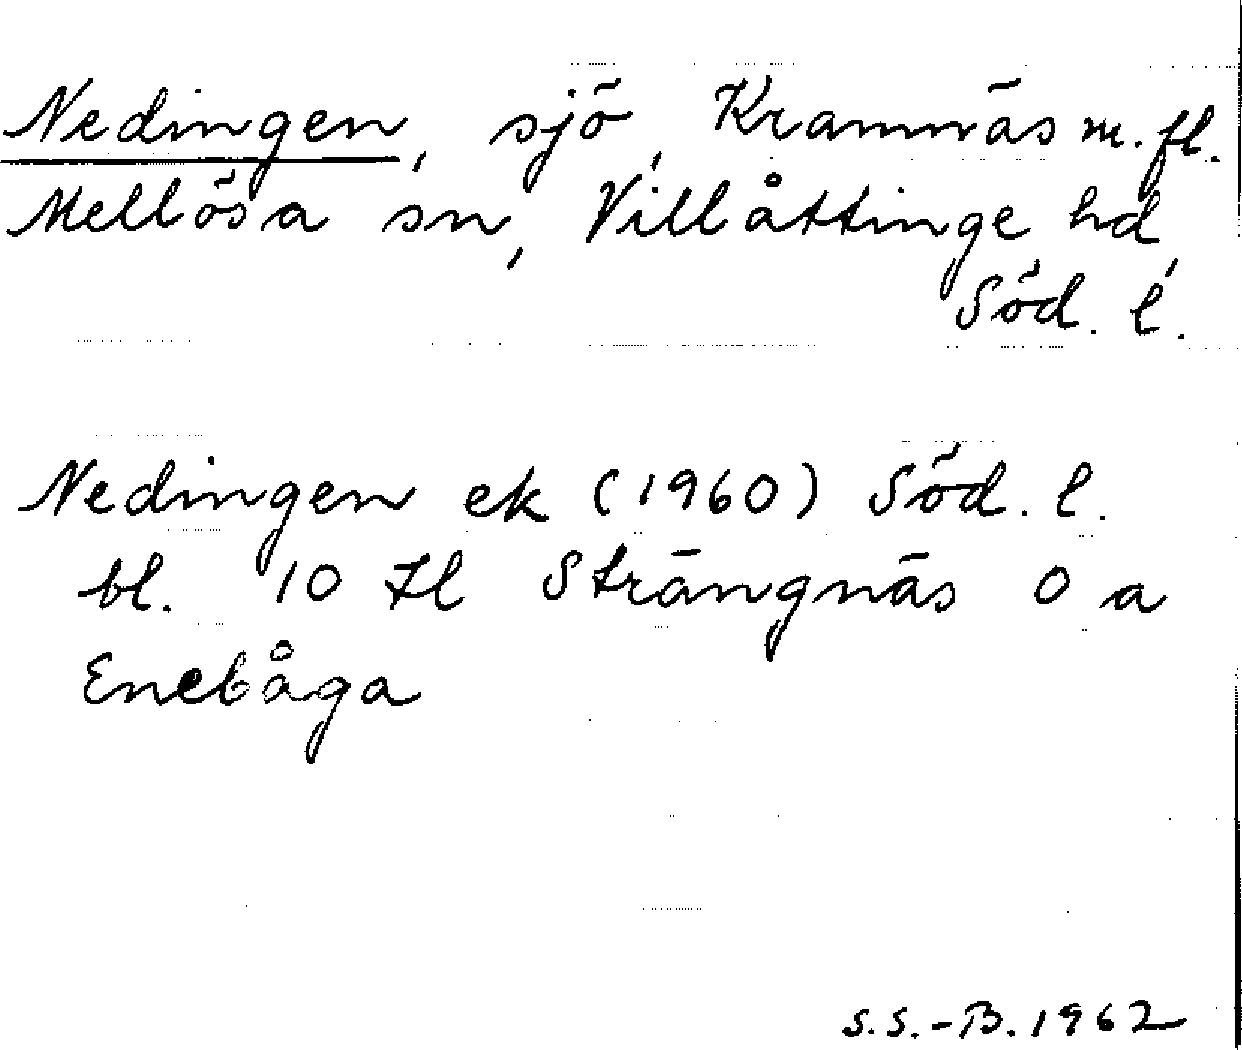 Nedingen, sjö, Kramnäs m.fl.
Mellösa sn, Villåttinge hd,
Söd. l.
Nedingen ek (1960) Söd. l.
bl. 10 Strängnäs 0 a
Enebåga
S.S.-B. 1962